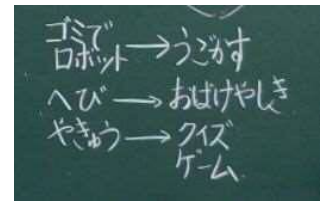 ゴミで
ロボット→うごかす
へび→おばけやしき
やきゅう→クイズ
ゲーム